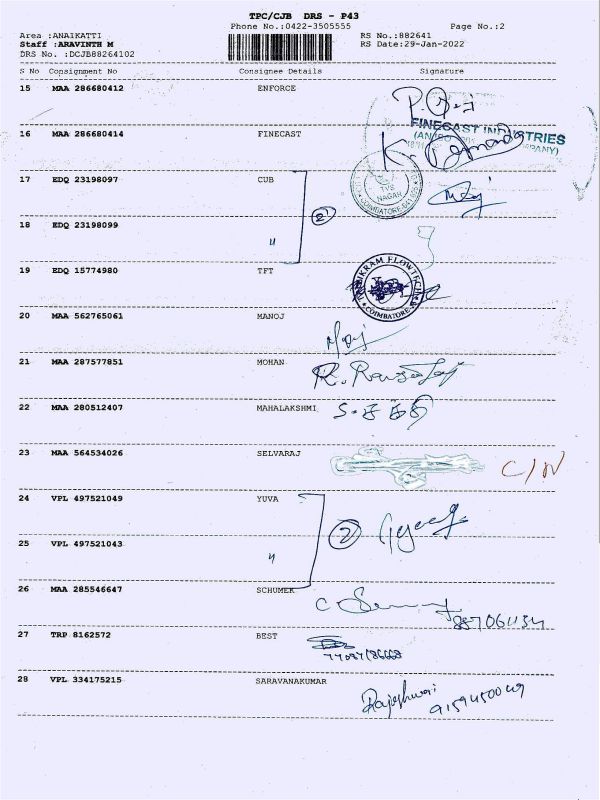 TPC/CJB DRS - P43
Phone No.:0422-3505555 Page No.:2
Area :ANAIKATTI RS No.:882641
Staff :ARAVINTH M RS Date:29-Jan-2022
DRS No. :DCJB88264102
S No Consignment No Consignee Details Signature
15 MAA 286680412 ENFORCE
FINECAST INDUSTRIES
16 MAA 286680414 FINECAST
17 EDQ 23198097 CUB
TVS NAGAR
COIMBATORE
2
18 EDQ 23198099 "
19 EDQ 15774980 TFT
COIMBATORE
20 MAA 562765061 MANOJ
21 MAA 287577851 MOHAN
22 MAA 280512407 MAHALAKSHMI
23 MAA 564534026 SELVARAJ C/N
24 VPL 497521049 YUVA
2
25 VPL 497521043 "
26 MAA 285546647 SCHUMEK
27 TRP 8162572 BEST
28 VPL 334175215 SARAVANAKUMAR
Rajeshwari
9159450049